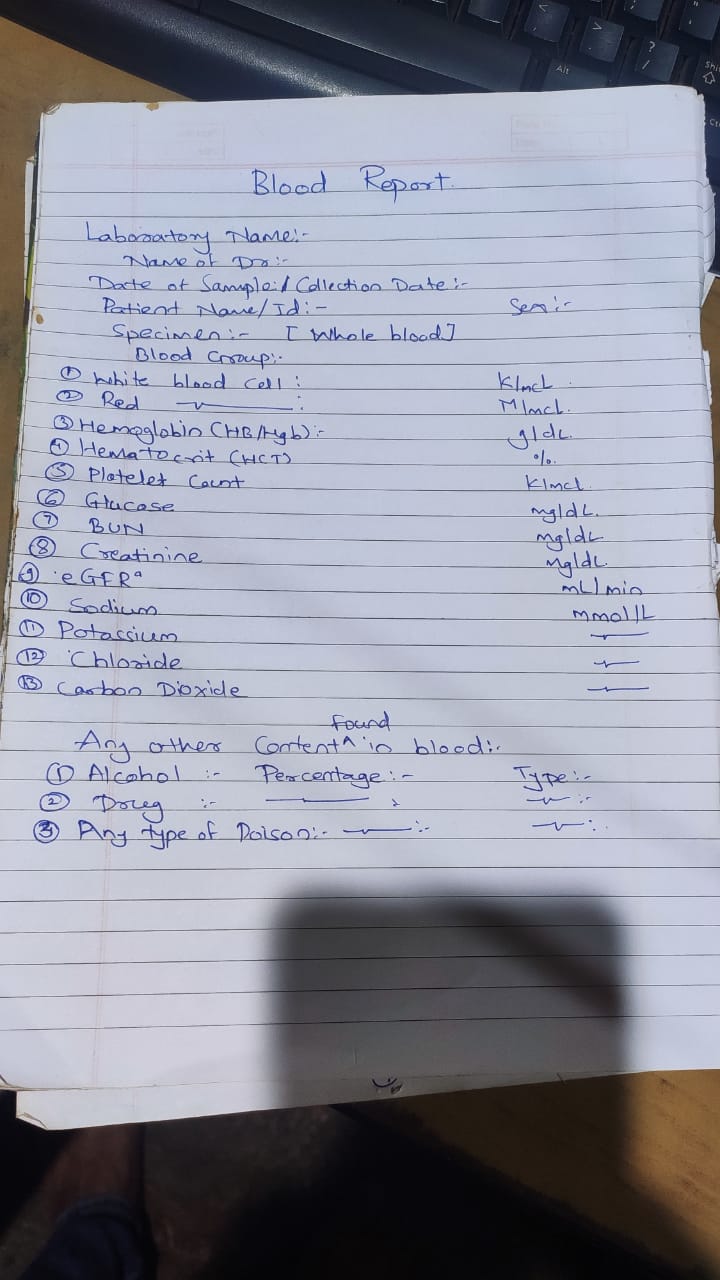 Blood Report.
Laboratory Name:-
Name of Dr:-
Date of Sample:/ Collection Date:-
Patient Name/Id:- Sex:-
Specimen:- [Whole blood]
Blood Group:-
① White blood Cell: K/mcL
② Red —〃— : M/mcL.
③ Hemoglobin (HB/Hgb):- g/dL.
④ Hematocrit (HCT) %.
⑤ Platelet Count K/mcL
⑥ Glucose mg/dL.
⑦ BUN mg/dL
⑧ Creatinine mg/dL
⑨ eGFRª mL/min
⑩ Sodium mmol/L
⑪ Potassium —〃—
⑫ Chloride —〃—
⑬ Carbon Dioxide —〃—
Any others Content ^found in blood:-
① Alcohol :- Percentage:- Type:-
② Drug :- —〃— —〃— :-
③ Any type of Poison:- —〃— :- —〃— :